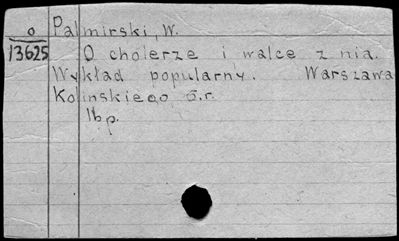 o Palmirski, W.
13625 O cholerze i walce z nia.
Wykład popularny. Warszawa
Kolinskiego ő.r.
16p.